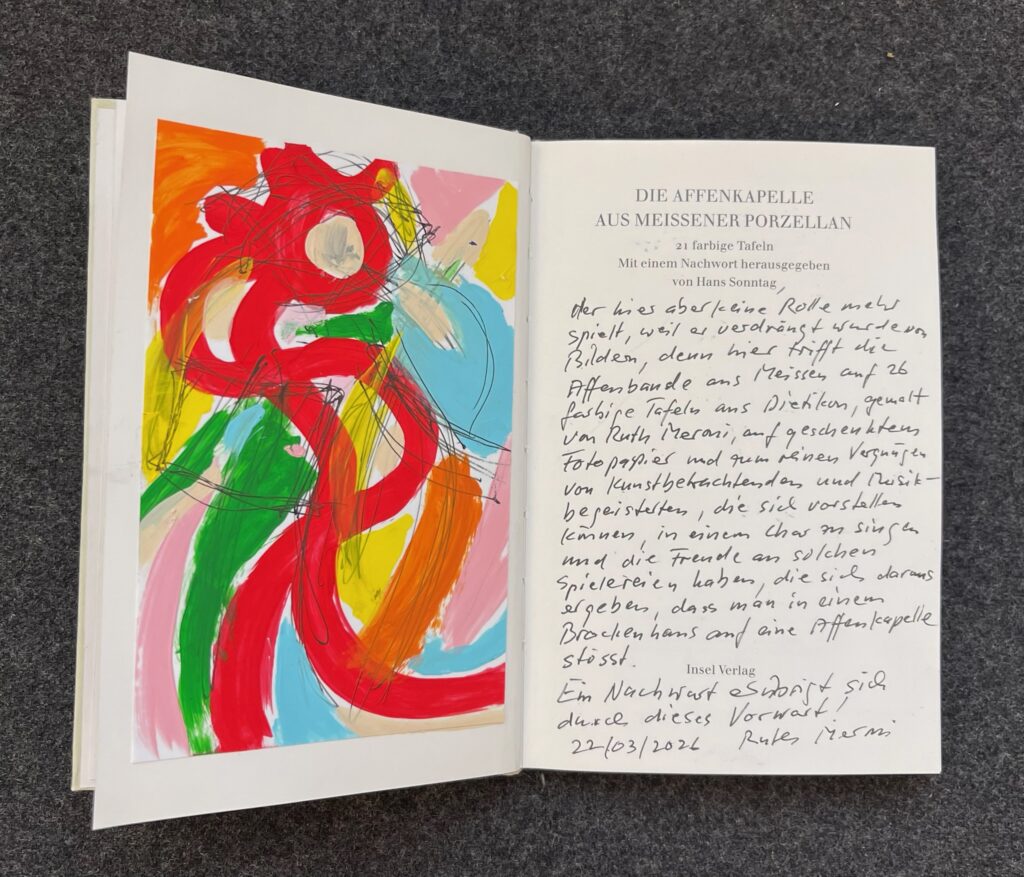 DIE AFFENKAPELLE
AUS MEISSENER PORZELLAN
21 farbige Tafeln
Mit einem Nachwort herausgegeben
von Hans Sonntag,
der hier aber keine Rolle mehr
spielt, weil er verdrängt wurde von
Bildern, denn hier trifft die
Affenbande aus Meissen auf 26
farbige Tafeln aus Dietikon, gemalt
von Ruth Meroni, auf geschenktem
Fotopapier und zum reinen Vergnügen
von Kunstbetrachtenden und Musik-
begeisterten, die sich vorstellen
können, in einem Chor zu singen
und die Freude an solchen
Spielereien haben, die sich daraus
ergeben, dass man in einem
Brockenhaus auf eine Affenkapelle
stösst.
Insel Verlag
Ein Nachwort erübrigt sich
durch dieses Vorwort,
22/03/2026 Ruth Meroni